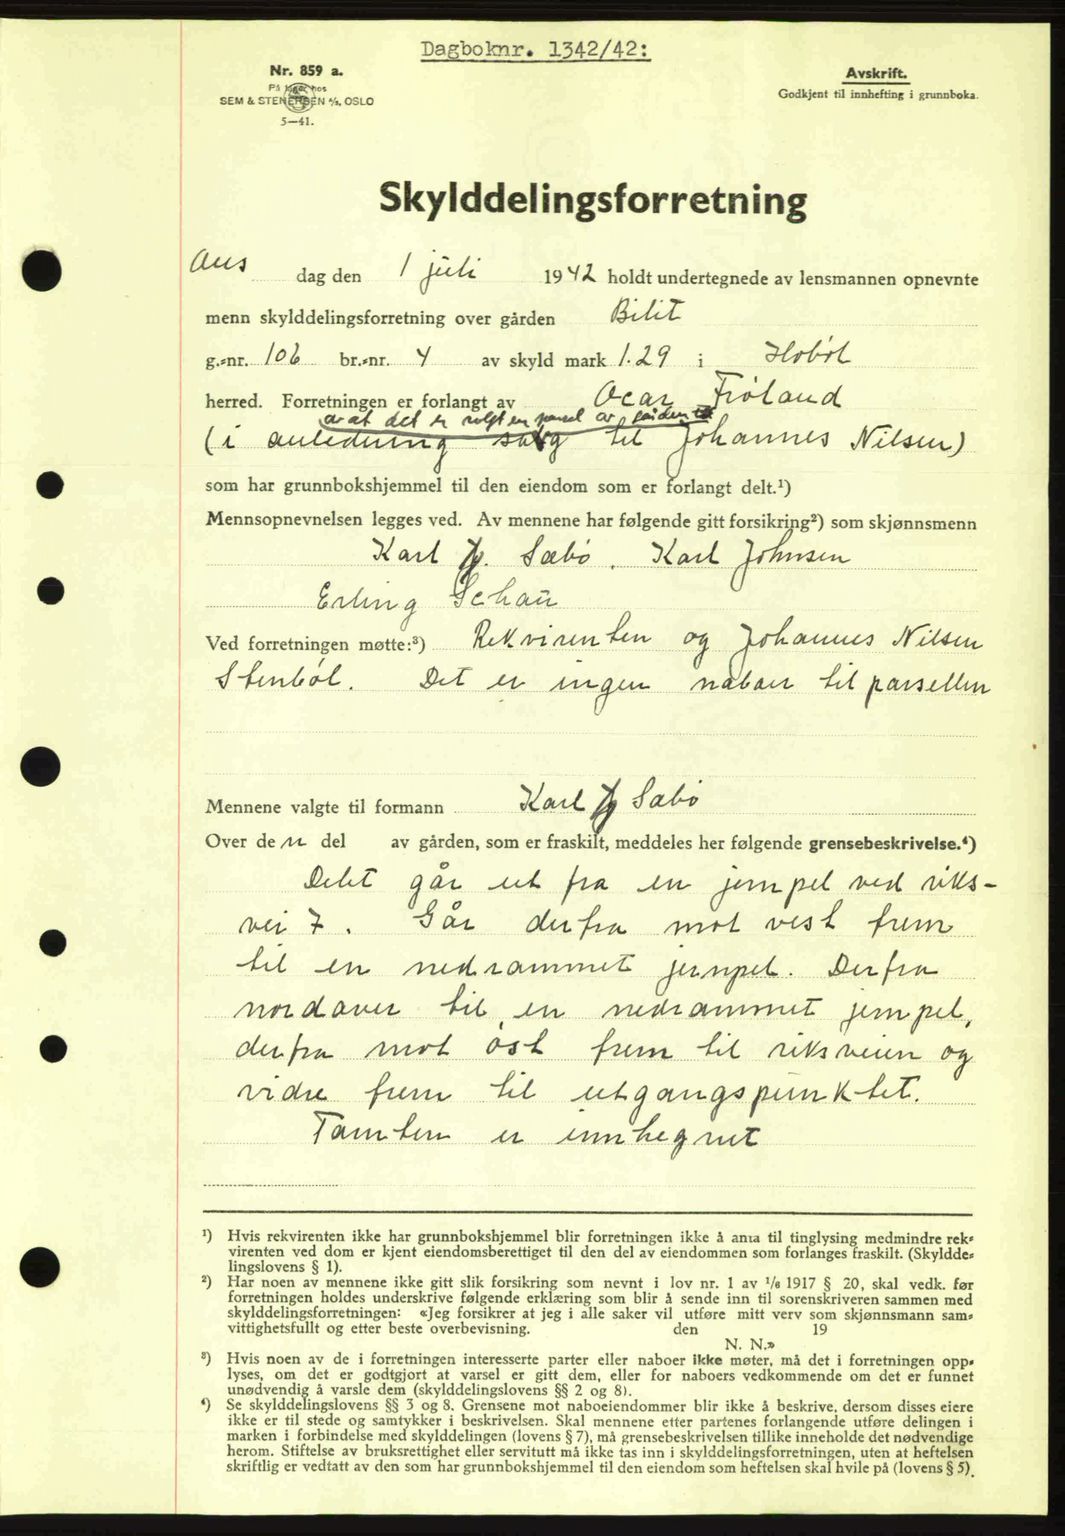 Dagboknr. 1342/42:
Nr. 859 a.
På lager hos
SEM & STENERSEN A/S, OSLO
5—41.
Avskrift.
Godkjent til innhefting i grunnboka.
Skylddelingsforretning
Ons dag den 1 juli 1942 holdt undertegnede av lensmannen opnevnte
menn skylddelingsforretning over gården Bilit
g.-nr. 106 br.-nr. 4 av skyld mark 1.29 i Hobøl
herred. Forretningen er forlangt av Ocar Frøland
av at det er solgt en parsel av gården
(i anledning salg til Johannes Nilsen)
som har grunnbokshjemmel til den eiendom som er forlangt delt.¹)
Mennsopnevnelsen legges ved. Av mennene har følgende gitt forsikring²) som skjønnsmenn
Karl Sæbø, Karl Johnsen
Erling Schau
Ved forretningen møtte:³) Rekvirenten og Johannes Nilsen
Stenbøl. Det er ingen naboer til parsellen
Mennene valgte til formann Karl Sæbø
Over den del av gården, som er fraskilt, meddeles her følgende grensebeskrivelse.⁴)
Delet går ut fra en jernpel ved riks-
vei 7. Går derfra mot vest frem
til en nedrammet jernpel. Derfra
nordover til en nedrammet jernpel,
derfra mot øst frem til riksveien og
vidre frem til utgangspunktet.
Tomten er innhegnet
¹) Hvis rekvirenten ikke har grunnbokshjemmel blir forretningen ikke å anta til tinglysing medmindre rek-
virenten ved dom er kjent eiendomsberettiget til den del av eiendommen som forlanges fraskilt. (Skyldde-
lingslovens § 1).
²) Har noen av mennene ikke gitt slik forsikring som nevnt i lov nr. 1 av 1/6 1917 § 20, skal vedk. før
forretningen holdes underskrive følgende erklæring som blir å sende inn til sorenskriveren sammen med
skylddelingsforretningen: «Jeg forsikrer at jeg i alle saker vil utføre mitt verv som skjønnsmann sam-
vittighetsfullt og etter beste overbevisning. den 19
N. N.»
³) Hvis noen av de i forretningen interesserte parter eller naboer ikke møter, må det i forretningen opp-
lyses, om det er godtgjort at varsel er gitt dem, eller for naboers vedkommende om det er funnet
unødvendig å varsle dem (skylddelingslovens §§ 2 og 8).
⁴) Se skylddelingslovens §§ 3 og 8. Grensene mot naboeiendommer blir ikke å beskrive, dersom disses eiere
ikke er til stede og samtykker i beskrivelsen. Skal mennene etter partenes forlangende utføre delingen i
marken i forbindelse med skylddelingen (lovens § 7), må grensebeskrivelsen tillike inneholde det nødvendige
herom. Stiftelse av bruksrettighet eller servitutt må ikke tas inn i skylddelingsforretningen, uten at heftelsen
skriftlig er vedtatt av den som har grunnbokshjemmel til den eiendom som heftelsen skal hvile på (lovens § 5).